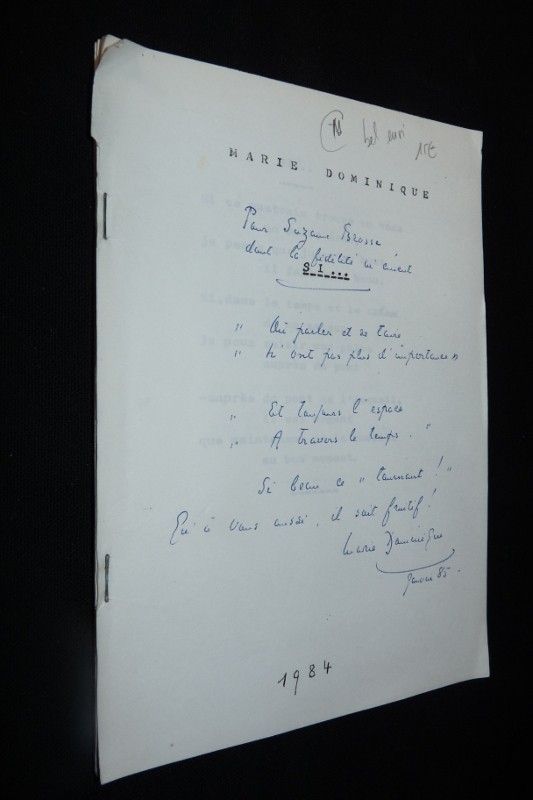 bel envi
15€
MARIE DOMINIQUE
Pour Suzanne Brosse
dont la fidélité m'émeut
SI...
" Où parler et se taire
" N'ont pas plus d'importance "
" Et toujours l'espace
" A travers le temps. "
Si beau ce " tournant ! "
Qu'à vous aussi, il soit fruitif !
Marie Dominique
Janvier 85 -
1984